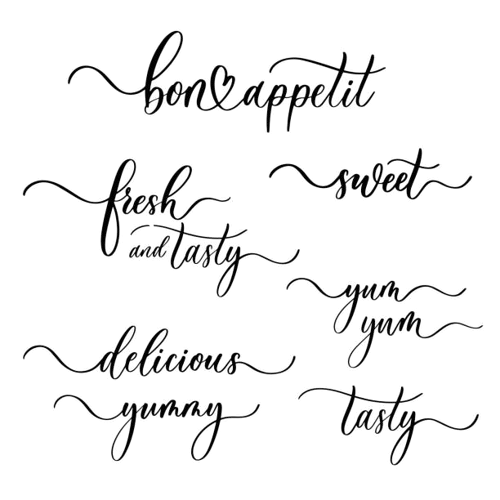 bon appetit
sweet
fresh
and tasty
yum
yum
delicious
yummy
tasty